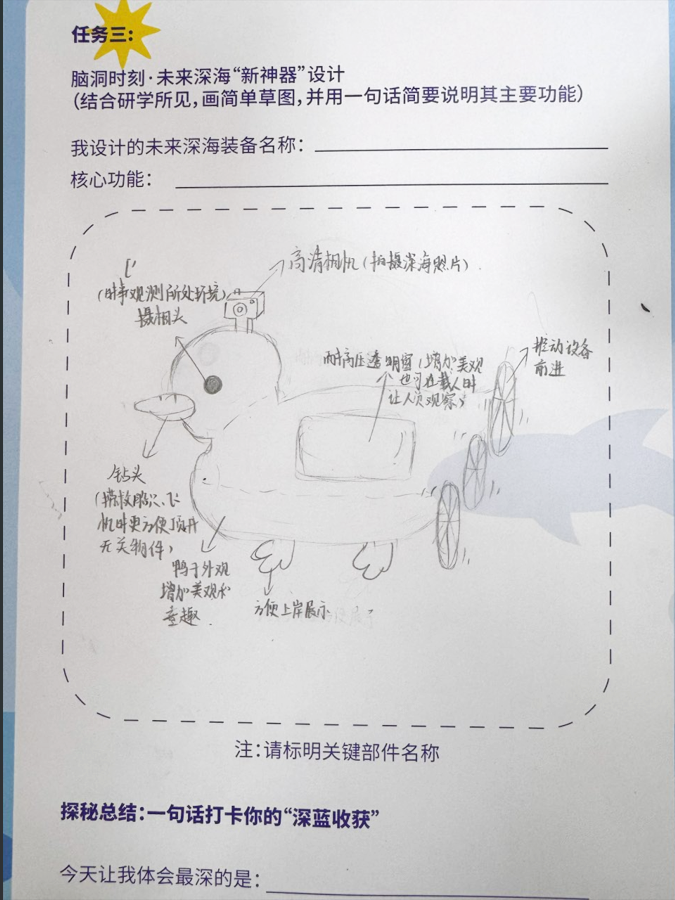 任务三：
脑洞时刻·未来深海“新神器”设计
（结合研学所见，画简单草图，并用一句话简要说明其主要功能）
我设计的未来深海装备名称：
核心功能：
高清相机（拍摄深海照片）
（时事观测所处环境）
摄相头
耐高压透明窗（增加美观
也可在载人时
让人员观察）
推动设备
前进
钻头
（搭救船只、飞
机时更方便顶开
无关物件）
鸭子外观
增加美观和
童趣
方便上岸展示
注：请标明关键部件名称
探秘总结：一句话打卡你的“深蓝收获”
今天让我体会最深的是：